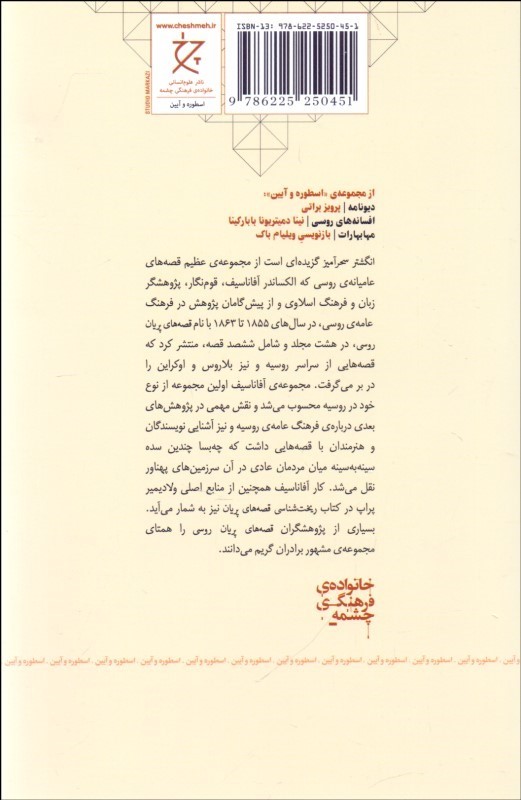 www.cheshmeh.ir
ناشر علوم‌انسانی
خانواده‌ی فرهنگی چشمه
اسطوره و آیین
STUDIO MARKAZI
ISBN-13: 978-622-5250-45-1
9 786225 250451
از مجموعه‌ی «اسطوره و آیین»:
دیونامه | پرویز براتی
افسانه‌های روسی | نینا دمیتریونا بابارکینا
مهابهارات | بازنویسیِ ویلیام باک
انگشتر سحرآمیز گزیده‌ای است از مجموعه‌ی عظیم قصه‌های
عامیانه‌ی روسی که الکساندر آفاناسیف، قوم‌نگار، پژوهشگر
زبان و فرهنگ اسلاوی و از پیش‌گامان پژوهش در فرهنگ
عامه‌ی روسی، در سال‌های ۱۸۵۵ تا ۱۸۶۳ با نام قصه‌های پریان
روسی، در هشت مجلد و شامل ششصد قصه، منتشر کرد که
قصه‌هایی از سراسر روسیه و نیز بلاروس و اوکراین را
در بر می‌گرفت. مجموعه‌ی آفاناسیف اولین مجموعه از نوع
خود در روسیه محسوب می‌شد و نقش مهمی در پژوهش‌های
بعدی درباره‌ی فرهنگ عامه‌ی روسیه و نیز آشنایی نویسندگان
و هنرمندان با قصه‌هایی داشت که چه‌بسا چندین سده
سینه‌به‌سینه میان مردمان عادی در آن سرزمین‌های پهناور
نقل می‌شد. کار آفاناسیف همچنین از منابع اصلی ولادیمیر
پراپ در کتاب ریخت‌شناسی قصه‌های پریان نیز به شمار می‌آید.
بسیاری از پژوهشگران قصه‌های پریان روسی را همتای
مجموعه‌ی مشهور برادران گریم می‌دانند.
خانواده‌ی
فرهنگی
چشمه
اسطوره و آیین . اسطوره و آیین . اسطوره و آیین . اسطوره و آیین . اسطوره و آیین . اسطوره و آیین . اسطوره و آیین . اسطوره و آیین . اسطوره و آیین . اسطوره و آیین . اسطوره و آیین . اسطوره و آیین